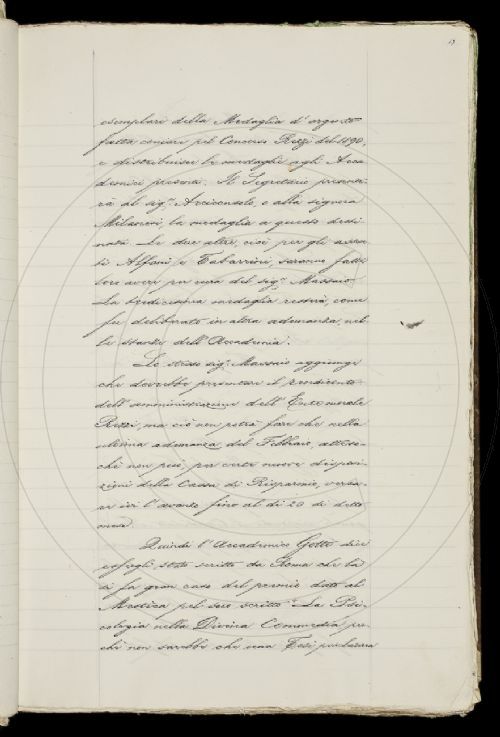 esemplari della Medaglia d'argento
fatta coniare pel Concorso Rezzi del 1890,
e distribuisce le medaglie agli Acca-
demici presenti. Il Segretario presente-
rà al sig.r Arciconsolo, e alla signora
Milanesi, la medaglia a questo desti-
nata. Le due altre, cioè per gli assen-
ti Alfani e Tabarrini, saranno fatte
loro avere per cura del sig.r Massaio.
La tredicesima medaglia resterà, come
fu deliberato in altra adunanza, nel-
le stanze dell'Accademia.
Lo stesso sig.r Massaio aggiunge
che dovrebbe presentare il rendiconto
dell'amministrazione dell'Ente morale
Rezzi, ma ciò non potrà fare che nella
ultima adunanza del Febbraio, atteso-
chè non può, per certe nuove disposi-
zioni della Cassa di Risparmio, versa-
re ivi l'avanzo fino al dì 20 di detto
mese.
Quindi l'Accademico Gotti dice
essergli stato scritto da Roma che là
si fa gran caso del premio dato al
Mestica pel suo scritto "La Psi-
cologia nella Divina Commedia per-
chè non sarebbe che una Tesi per laurea